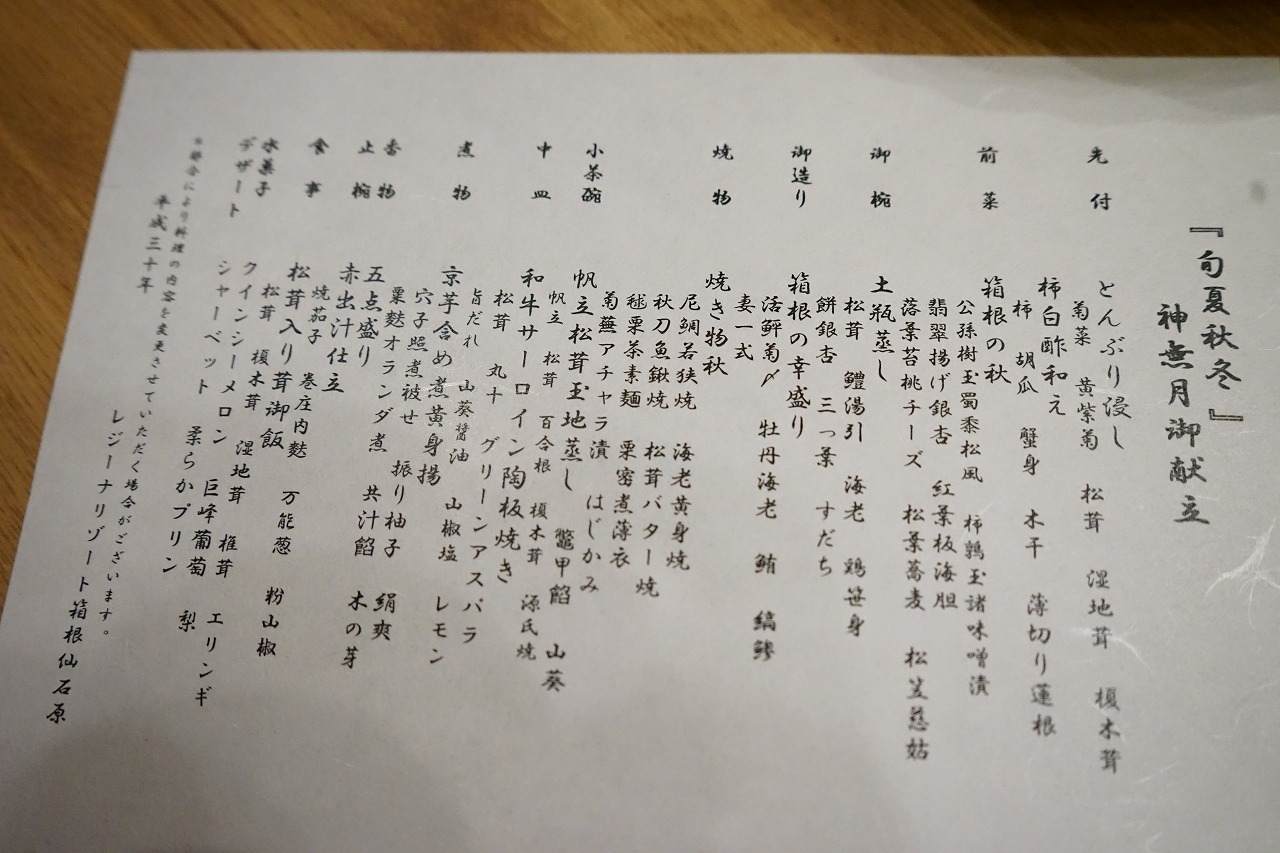 『旬夏秋冬』
神無月御献立
先付
とんぶり浸し
菊菜 黄紫菊 松茸 湿地茸 榎木茸
柿白酢和え
柿 胡瓜 蟹身 木干 薄切り蓮根
前菜
箱根の秋
公孫樹玉蜀黍松風 柿鶉玉諸味噌漬
翡翠揚げ銀杏 紅葉板海胆
落葉苔桃チーズ 松葉蕎麦 松笠慈姑
御椀
土瓶蒸し
松茸 鱧湯引 海老 鶏笹身
餅銀杏 三つ葉 すだち
御造り
箱根の幸盛り
活鮃菊〆 牡丹海老 鮪 縞鯵
妻一式
焼物
焼き物秋
尼鯛若狭焼 海老黄身焼
秋刀魚鍬焼 松茸バター焼
毬栗茶素麺 栗密煮薄衣
菊蕪アチャラ漬 はじかみ
小茶碗
帆立松茸玉地蒸し 鼈甲餡 山葵
帆立 松茸 百合根 榎木茸 源氏焼
中皿
和牛サーロイン陶板焼き
松茸 丸十 グリーンアスパラ
旨だれ 山葵醤油 山椒塩 レモン
煮物
京芋含め煮黄身揚
穴子照煮被せ 振り柚子 絹爽
粟麩オランダ煮 共汁餡 木の芽
香物
五点盛り
止椀
赤出汁仕立
焼茄子 巻庄内麩 万能葱 粉山椒
食事
松茸入り茸御飯
松茸 榎木茸 湿地茸 椎茸 エリンギ
水菓子
クインシーメロン 巨峰葡萄 梨
デザート
シャーベット 柔らかプリン
*都合により料理の内容を変更させていただく場合がございます。
平成三十年
レジーナリゾート箱根仙石原